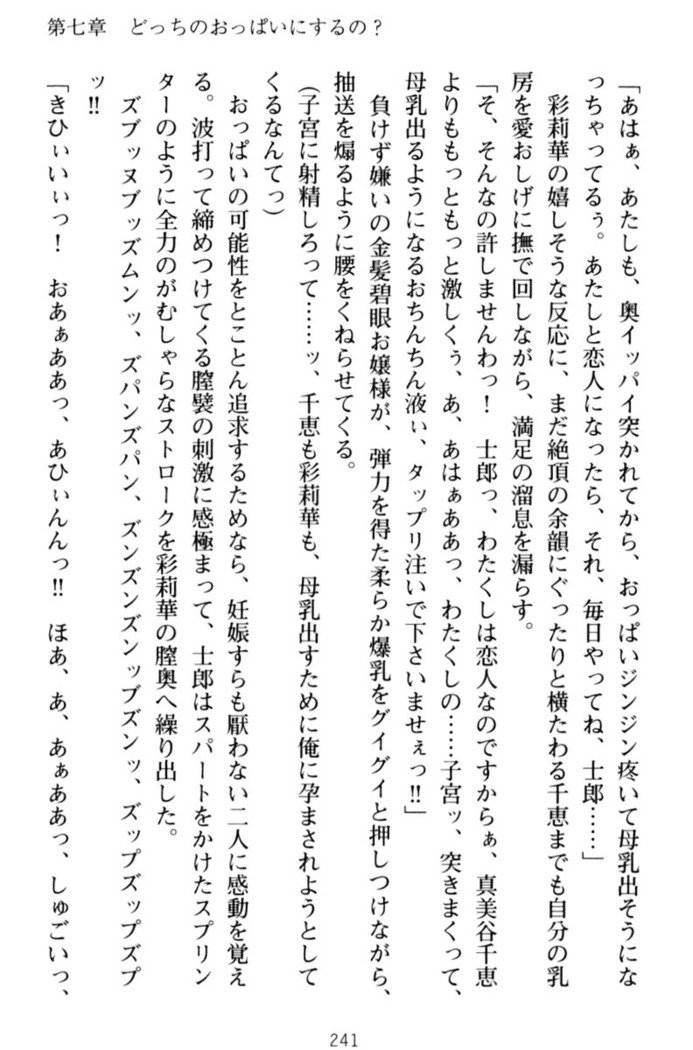 第七章　どっちのおっぱいにするの？
「あはぁ、あたしも、奥イッパイ突かれてから、おっぱいジンジン疼いて母乳出そうにな
っちゃってるぅ。あたしと恋人になったら、それ、毎日やってね、士郎……」
　彩莉華の嬉しそうな反応に、まだ絶頂の余韻にぐったりと横たわる千恵までも自分の乳
房を愛おしげに撫で回しながら、満足の溜息を漏らす。
「そ、そんなの許しませんわっ！　士郎っ、わたくしは恋人なのですからぁ、真美谷千恵
よりももっともっと激しくぅ、あ、あはぁああっ、わたくしの……子宮ッ、突きまくって、
母乳出るようになるおちんちん液ぃ、タップリ注いで下さいませぇっ!!」
　負けず嫌いの金髪碧眼お嬢様が、弾力を得た柔らか爆乳をグイグイと押しつけながら、
抽送を煽るように腰をくねらせてくる。
(子宮に射精しろって……ッ、千恵も彩莉華も、母乳出すために俺に孕まされようとして
くるなんてっ)
　おっぱいの可能性をとことん追求するためなら、妊娠すらも厭わない二人に感動を覚え
る。波打って締めつけてくる膣襞の刺激に感極まって、士郎はスパートをかけたスプリン
ターのように全力のがむしゃらなストロークを彩莉華の膣奥へ繰り出した。
　ズブッヌブッズムンッ、ズパンズパン、ズンズンズンッブズンッ、ズップズップズプ
ッ!!
「きひぃいぃっ！　おあぁああっ、あひぃんんっ!!　ほあ、あ、あぁああっ、しゅごいっ、
241